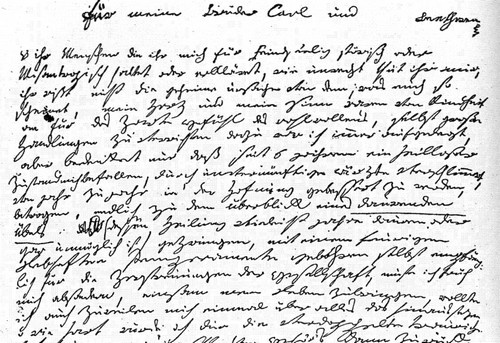 für meine Brüder Carl und Beethowen
o ihr Menschen die ihr mich für feindseelig störisch oder
Misantropisch haltet oder erkläret, wie unrecht thut ihr mir,
ihr wißt nicht die geheime urßache von dem, was euch so
scheinet, mein Herz und mein Sinn waren von Kindheit
an für das Zarte gefühl des wohlwollens, selbst große
Handlungen zu verrichten dazu war ich immer aufgelegt,
aber bedenket nur daß seit 6 jahren ein heilloser
Zustand mich befallen, durch unvernünftige ärzte verschlimmert,
von jahr zu jahr in der Hofnung gebessert zu werden,
betrogen, endlich zu dem überblick eines daurenden
Übels dessen Heilung vieleicht jahre dauren oder
gar unmöglich ist, gezwungen, mit einem feurigen
Lebhaften Temperamente gebohren selbst empfäng-
lich für die Zerstreuungen der Gesellschaft, muste ich früh
mich absondern, einsam mein Leben zubringen, wollte
ich auch zuweilen mich einmal über alles das hinaussezen,
o wie hart wurde ich dur die verdoppelte traurige
dann zurück